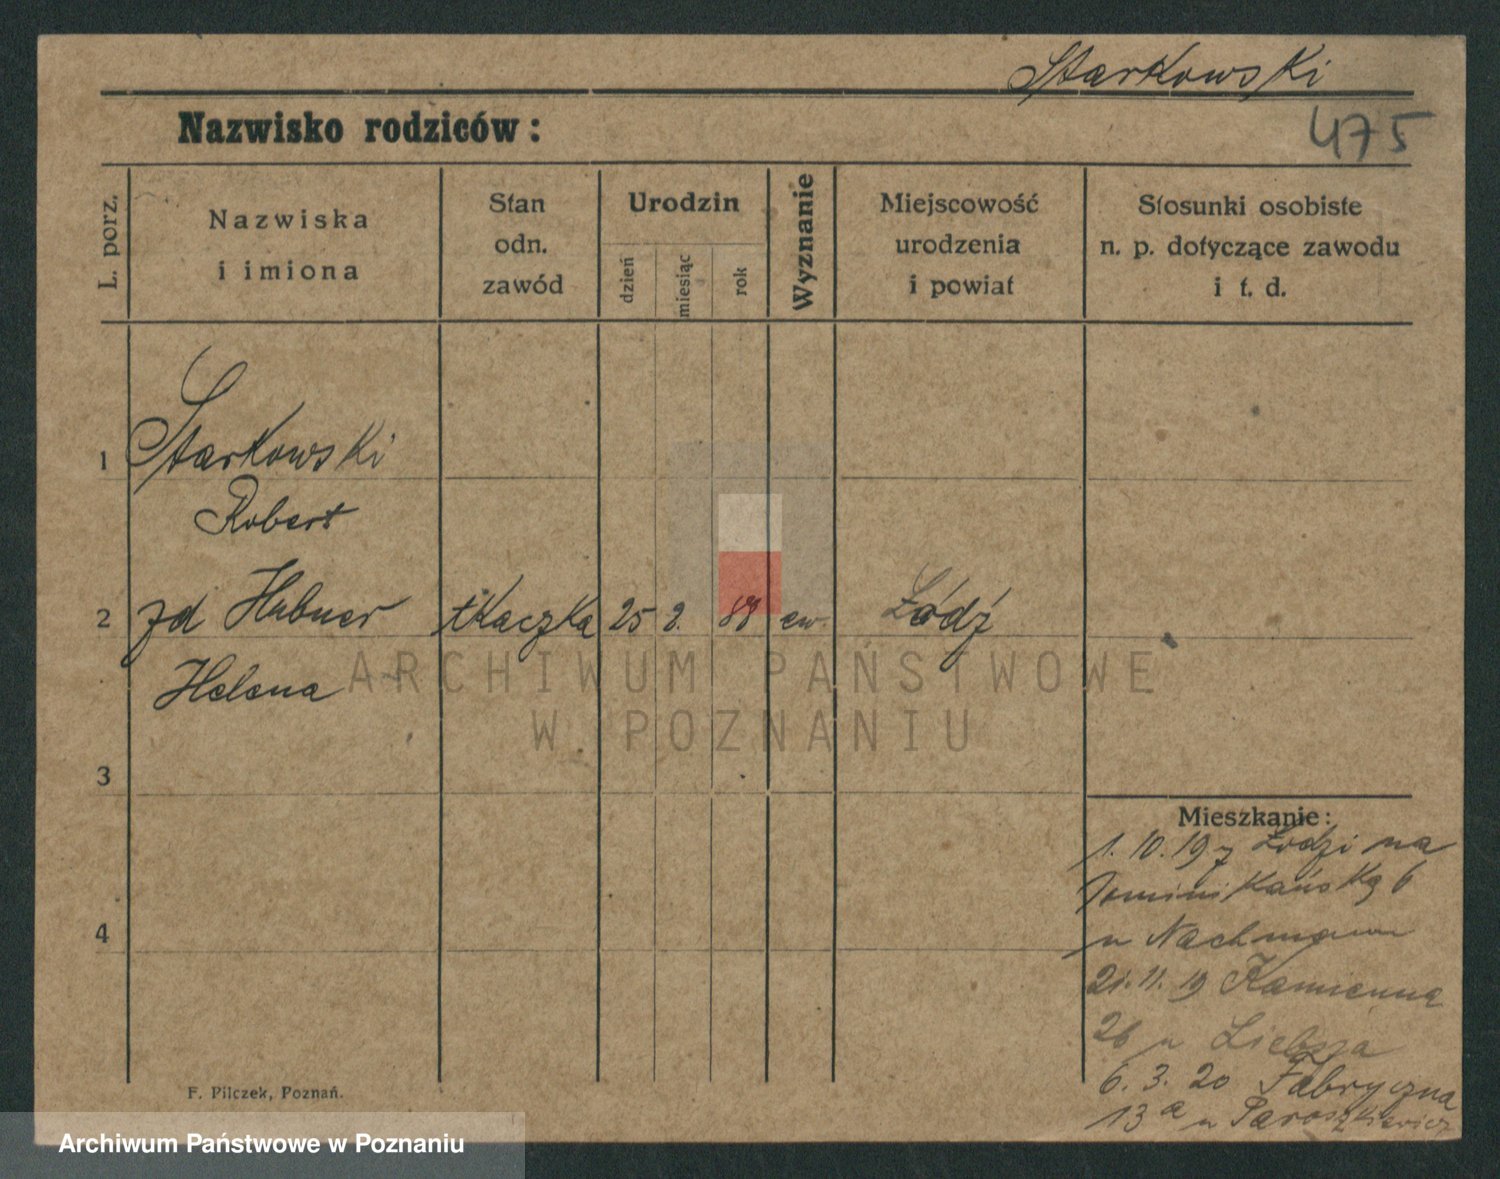 Starkowski
475
Nazwisko rodziców:
L. porz.
Nazwiska
i imiona
Stan
odn.
zawód
Urodzin
dzień
miesiąc
rok
Wyznanie
Miejscowość
urodzenia
i powiat
Stosunki osobiste
n. p. dotyczące zawodu
i t. d.
1
Starkowski
Robert
2 zd Hubner tkaczka 25 2. 88 ew. Łódź
Helena
ARCHIWUM PAŃSTWOWE
W POZNANIU
3
4
Mieszkanie:
1. 10. 19 z Łodzi na
Dominikańską 6
u Nachmann
21. 11. 19 Kamienna
26 u
6. 3. 20 Fabryczna
13 a u
F. Pilczek, Poznań.
Archiwum Państwowe w Poznaniu